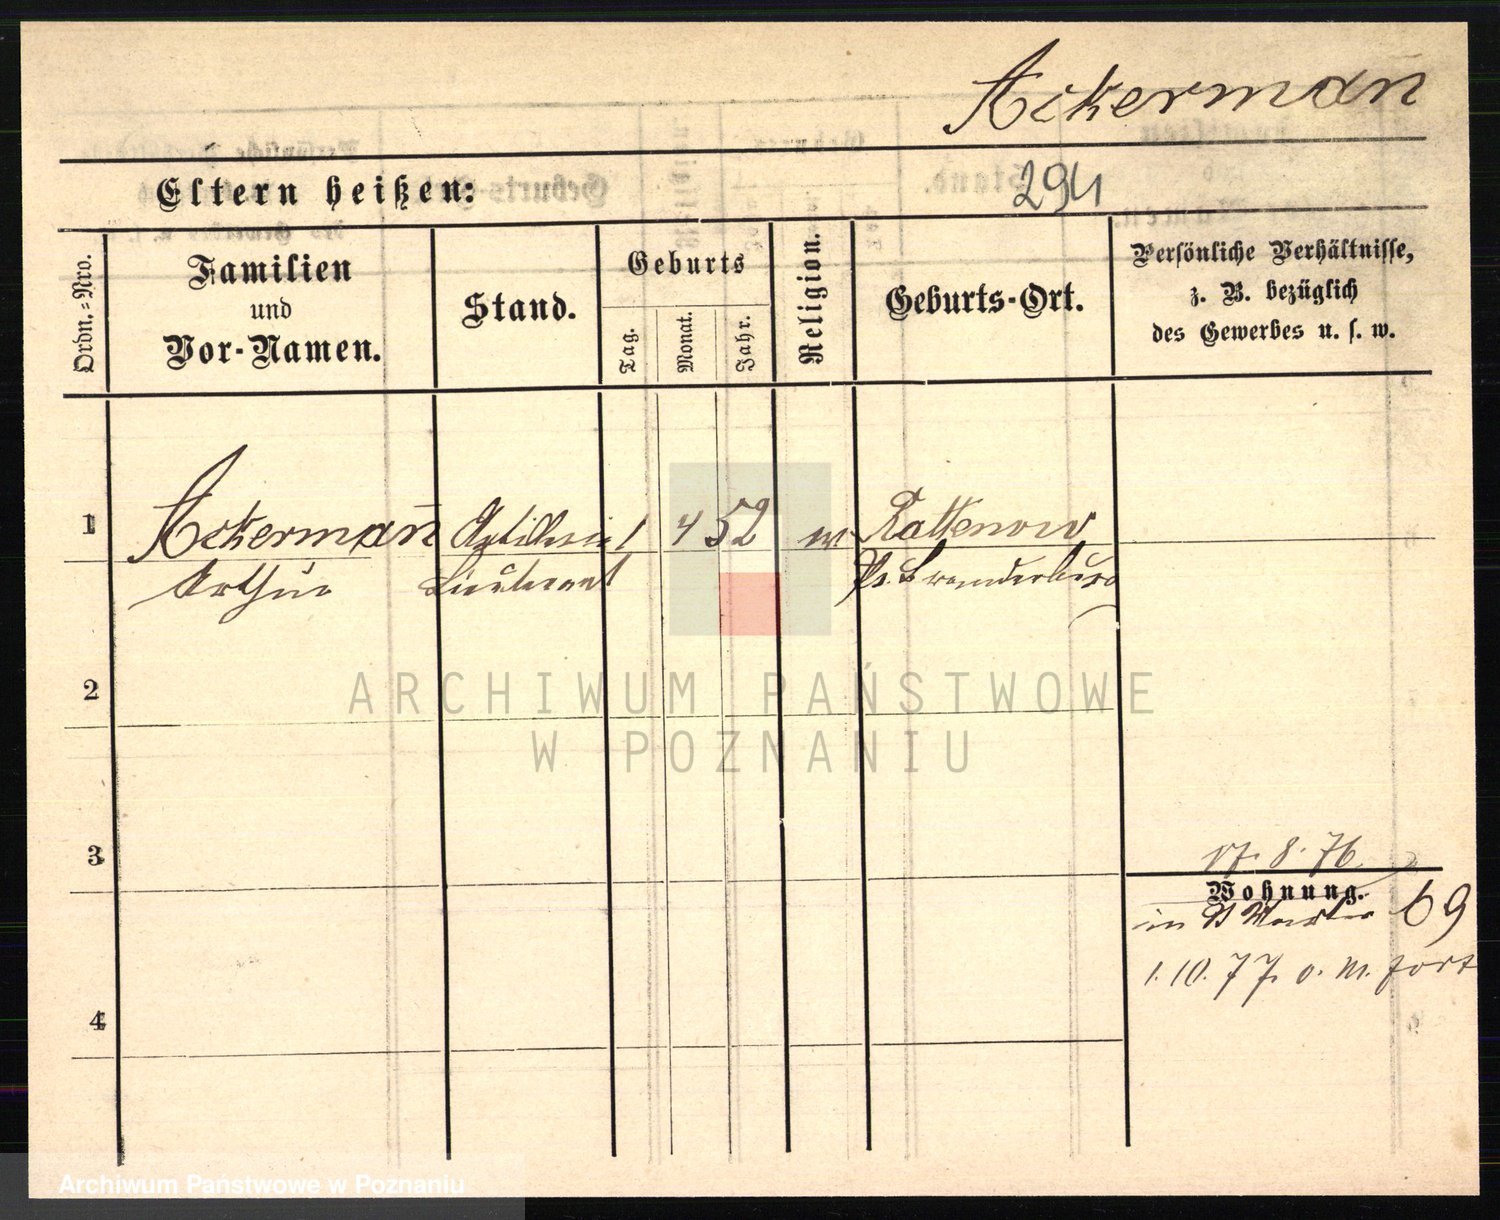 Ackermañ
Eltern heißen:
294
Ordn.-Nro.
Familien
und
Vor-Namen.
Stand.
Geburts
Tag.
Monat.
Jahr.
Religion.
Geburts-Ort.
Persönliche Verhältnisse,
z. B. bezüglich
des Gewerbes u. s. w.
1 Ackermañ Artillerie 4 52 Rattenow
Arthur Lieutenant Pr. Brandenburg
ARCHIWUM PAŃSTWOWE
W POZNANIU
2
3
17. 8. 76
Wohnung.
in St Martin 69
1. 10. 77. o. M. fort
4
Archiwum Państwowe w Poznaniu